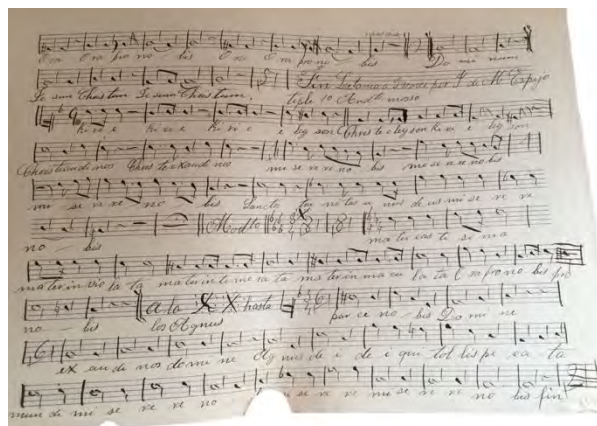 Ora Ora pro no - bis Ora Ora pro no - bis Do mi num
Je sum Chris tum Je sum Chris tum Fin Letania a 3 voces por
tiple 1º And.te mosso
Ki ri e Ki ri e Ki ri e e leyson Chris te e leyson Ki ri e e ley son
Chris te au di nos Chris te exau di nos mi se re re no bis mi se re re no bis
mi se re re no bis Sancta tri ni tas u nus de us mi se re re
no bis Mod.to ma ter cas ti si ma
ma ter in vio la ta ma ter in te me ra ta ma ter in ma cu la ta O ra pro no bis pro
no bis a la X X hasta par ce no - bis Do mi ne
los Agnus
ex au di nos do mi ne Ag nus de i de i qui tol lis pe ca ta
mun di mi se re re no - se re re re no bis fin